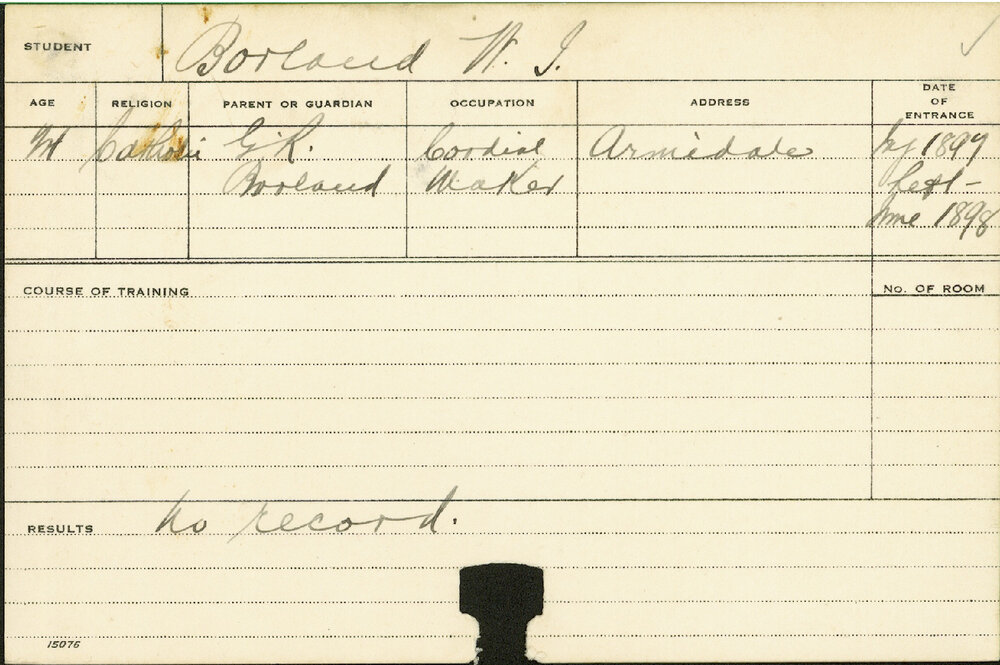 STUDENT Borland W. J.
AGE RELIGION PARENT OR GUARDIAN OCCUPATION ADDRESS DATE OF ENTRANCE
Catholic G. R. Cordial Armidale 1897
Borland Maker Sept -
June 1898
COURSE OF TRAINING No. OF ROOM
RESULTS No record.
15076